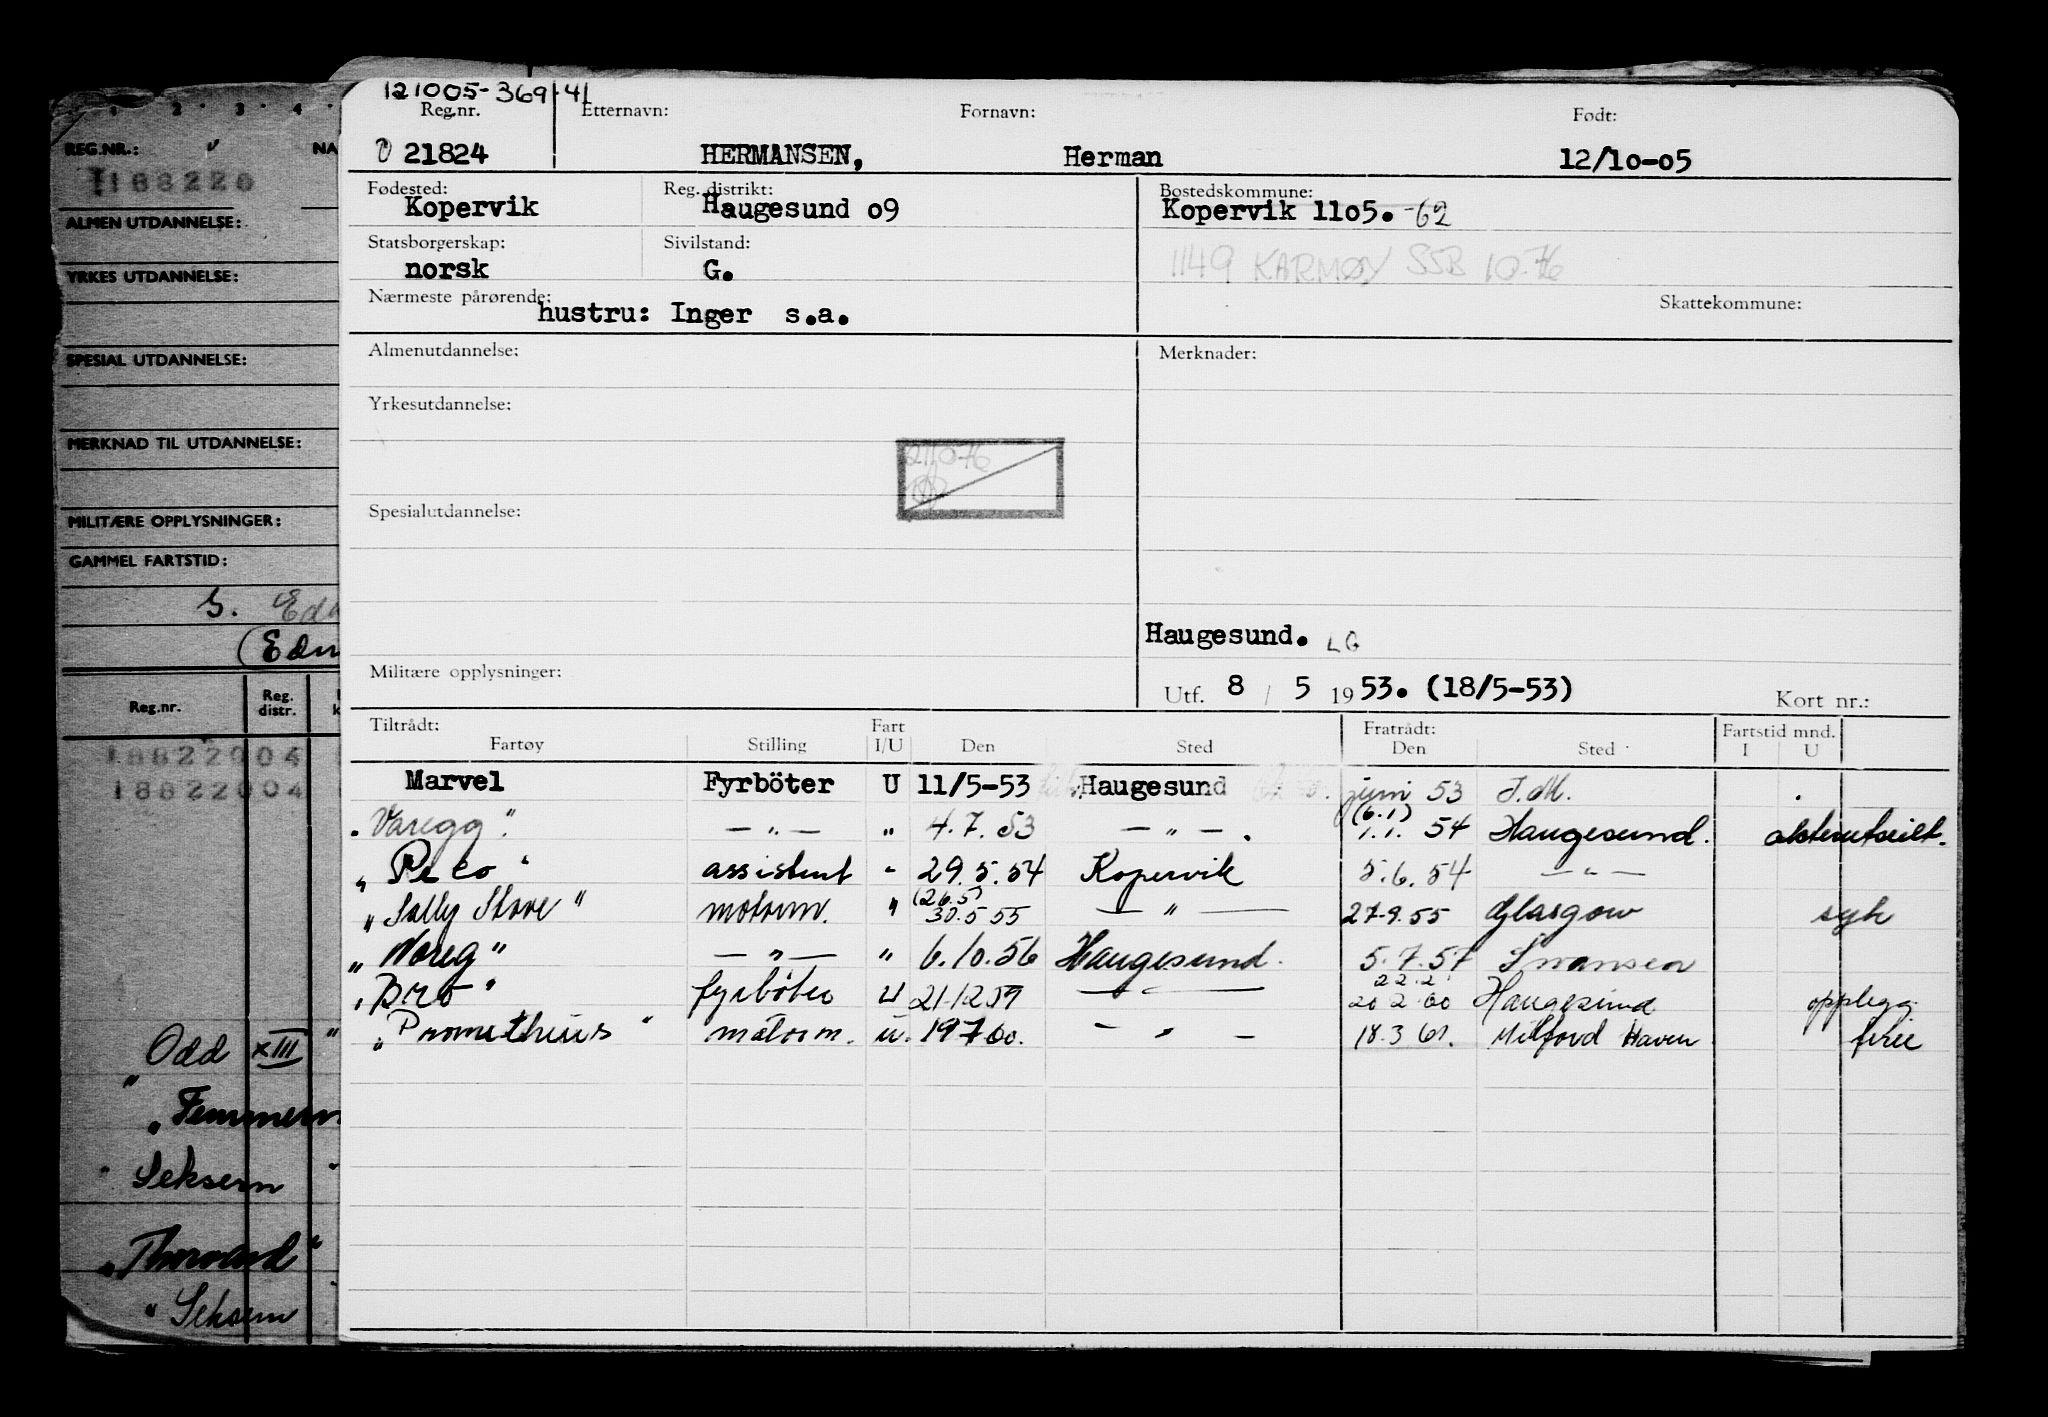 1 2 3 4
REG.NR.: NA
188220
ALMEN UTDANNELSE:
YRKES UTDANNELSE:
SPESIAL UTDANNELSE:
MERKNAD TIL UTDANNELSE:
MILITÆRE OPPLYSNINGER:
GAMMEL FARTSTID:
Reg.nr. Reg. distr.
18822004
18822004
Odd XIII "
" Femmern
" Seksern "
" Thorvard "
" Seksern
121005-36941
Reg.nr. Etternavn: Fornavn: Født:
21824 HERMANSEN, Herman 12/10-05
Fødested: Reg. distrikt: Bostedskommune:
Kopervik Haugesund 09 Kopervik 1105. -62
Statsborgerskap: Sivilstand:
norsk G. 1149 KARMØY SSB 10.76
Nærmeste pårørende: Skattekommune:
hustru: Inger s.a.
Almenutdannelse: Merknader:
Yrkesutdannelse:
211076
Spesialutdannelse:
Haugesund. LG
Militære opplysninger:
Utf. 8 / 5 1953. (18/5-53) Kort nr.:
Tiltrådt: Fart Fratrådt: Fartstid mnd.
Fartøy Stilling I/U Den Sted Den Sted I U
Marvel Fyrböter U 11/5-53 Haugesund juni 53 I.M.
"Varegg" — " — " 4.7.53 — " — (6.1) 1.1. 54 Haugesund. akterutseilt.
"Peco" assistent " 29.5.54 Kopervik 5.6.54 — " —
"Sally Stove" motorm. " (26.5) 30.5.55 — " — 27.9.55 Glasgow syk
"Noreg" — " — " 6.10.56 Haugesund. 5.7.57 Swansea
"Bro" fyrböter U 21.12.59 — " — 22.2 20.2.60 Haugesund opplegg
"Prometheus" motorm. u. 19760. — " — 18.3.61. Milford Haven ferie